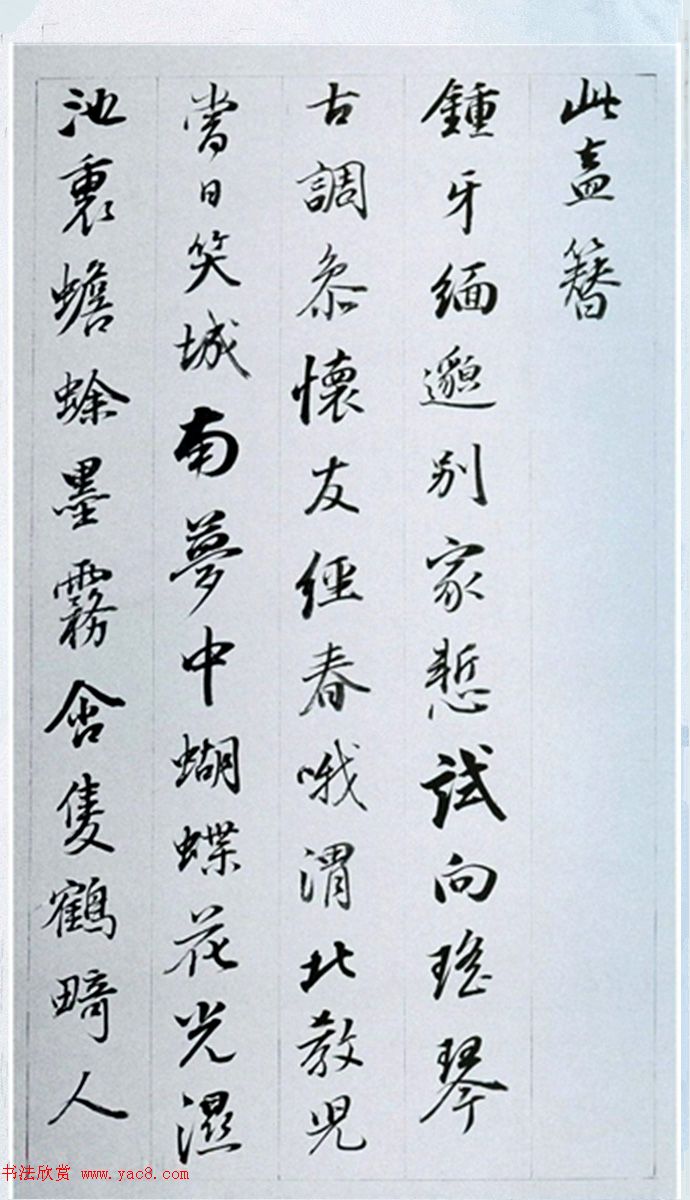 此盍簪
鍾牙緬邈別家慙試向瑤琴
古調參懷友經春哦渭北教兒
嘗日笑城南夢中蝴蝶花光濕
池裏蟾蜍墨霧含隻鶴畸人
书法欣赏 www.yac8.com